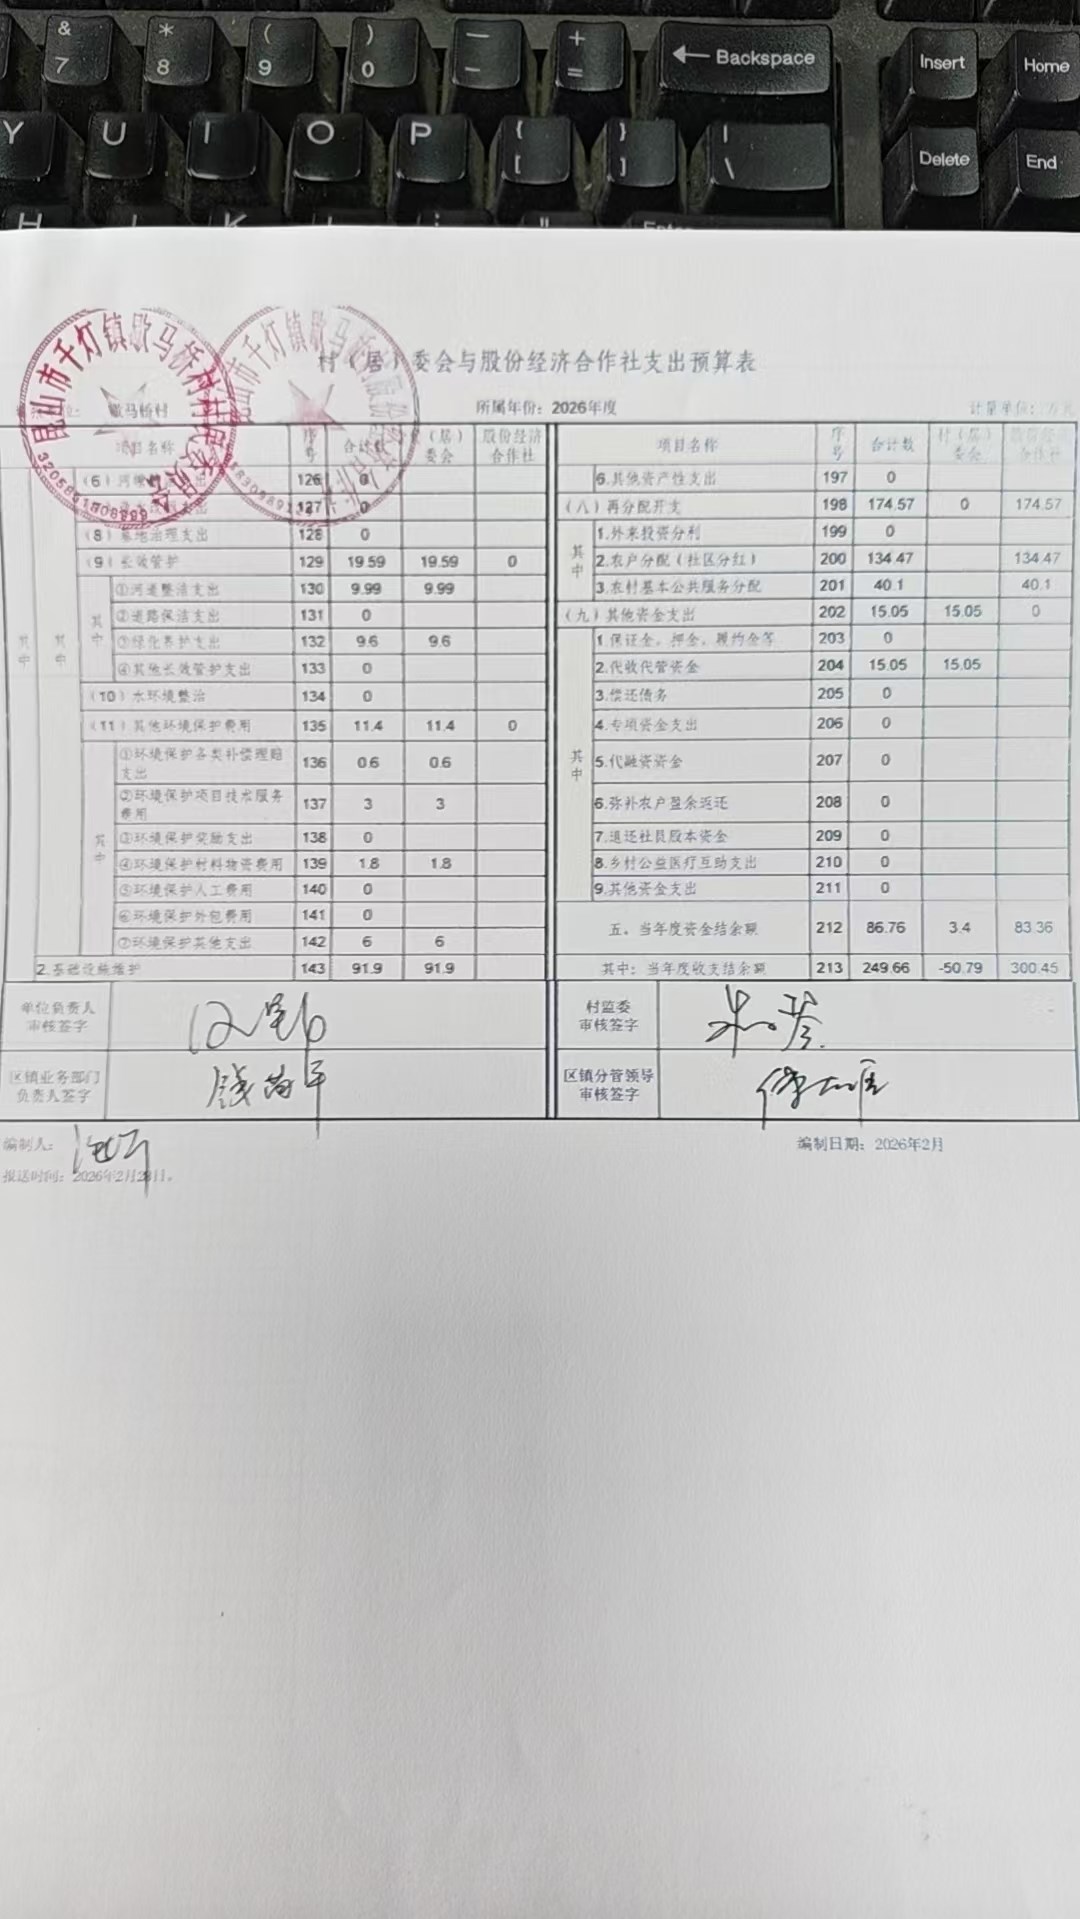 & * ( ) — +
7 8 9 0 - = Backspace Insert Home
Y U I O P { [ } ] | \ Delete End
村（居）委会与股份经济合作社支出预算表
歇马桥村 所属年份：2026年度 计量单位：万元
项目名称 序号 合计数 村（居）委会 股份经济合作社 项目名称 序号 合计数 村（居）委会 股份经济合作社
昆山市千灯镇歇马桥村村民委员会
昆山市千灯镇歇马桥村股份经济合作社
其中 其中
126 0 6.其他资产性支出 197 0
127 0 （八）再分配开支 198 174.57 0 174.57
（8）墓地治理支出 128 0 其中 1.外来投资分利 199 0
（9）长效管护 129 19.59 19.59 0 2.农户分配（社区分红） 200 134.47 134.47
其中 ①河道整洁支出 130 9.99 9.99 3.农村基本公共服务分配 201 40.1 40.1
②道路保洁支出 131 0 （九）其他资金支出 202 15.05 15.05 0
③绿化养护支出 132 9.6 9.6 其中 1.保证金、押金、履约金等 203 0
④其他长效管护支出 133 0 2.代收代管资金 204 15.05 15.05
（10）水环境整治 134 0 3.偿还债务 205 0
（11）其他环境保护费用 135 11.4 11.4 0 4.专项资金支出 206 0
其中 ①环境保护各类补偿理赔支出 136 0.6 0.6 5.代融资资金 207 0
②环境保护项目技术服务费用 137 3 3 6.弥补农户盈余返还 208 0
③环境保护奖励支出 138 0 7.退还社员股本资金 209 0
④环境保护材料物资费用 139 1.8 1.8 8.乡村公益医疗互助支出 210 0
⑤环境保护人工费用 140 0 9.其他资金支出 211 0
⑥环境保护外包费用 141 0 五、当年度资金结余额 212 86.76 3.4 83.36
⑦环境保护其他支出 142 6 6
2.基础设施维护 143 91.9 91.9 其中：当年度收支结余额 213 249.66 -50.79 300.45
单位负责人审核签字 村监委审核签字
区镇业务部门负责人签字 区镇分管领导审核签字
编制人： 编制日期：2026年2月
报送时间：2026年2月28日。